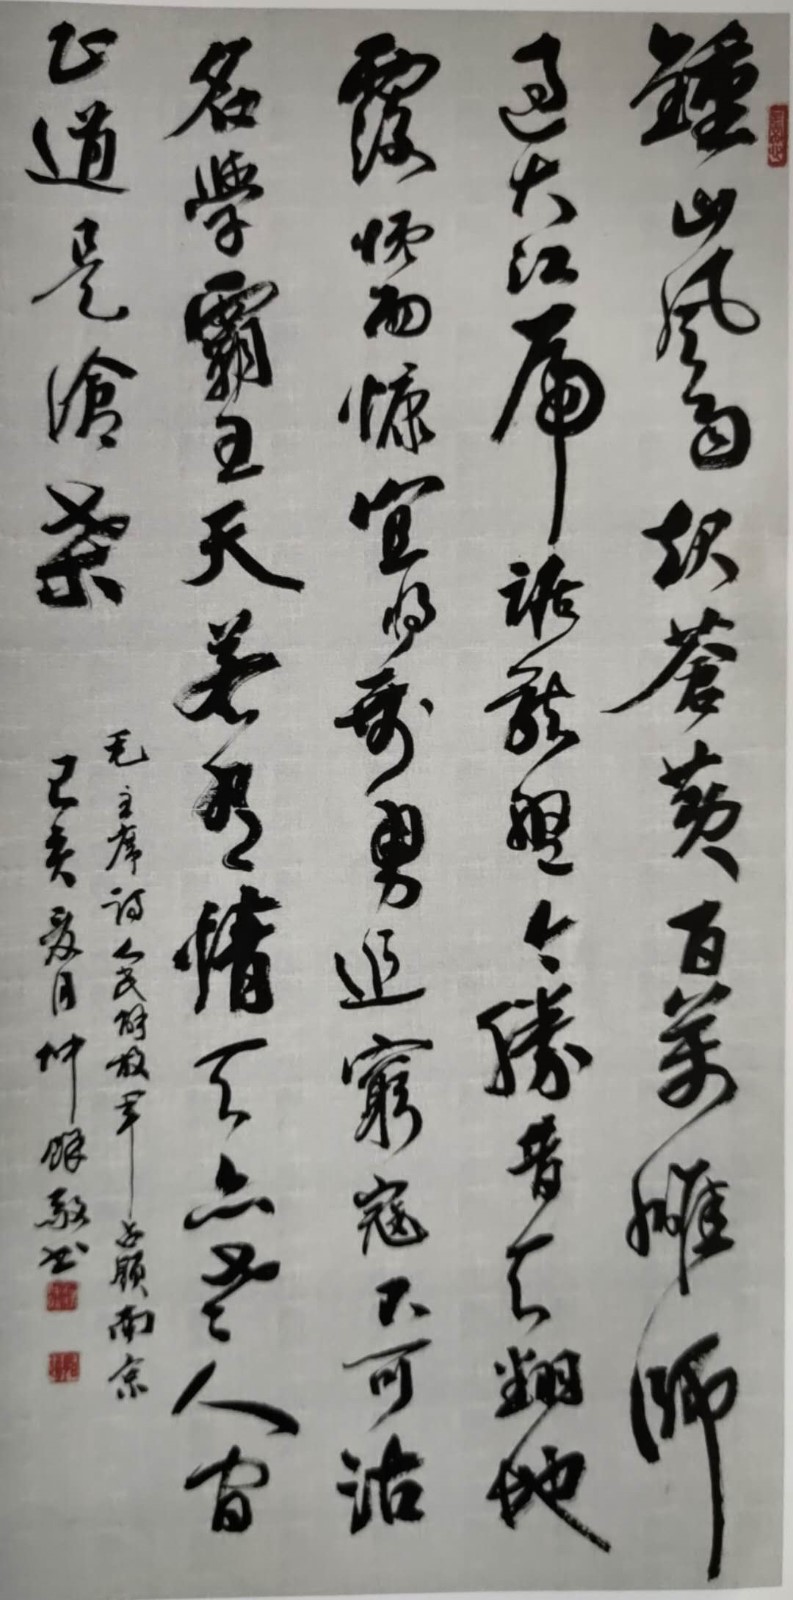 鍾山風雨起蒼黄百萬雄師
過大江虎踞龍盤今勝昔天翻地
覆慨而慷宜将剩勇追窮寇不可沽
名學霸王天若有情天亦老人間
正道是滄桑
毛主席詩人民解放軍占領南京
己亥夏月仲 敬書